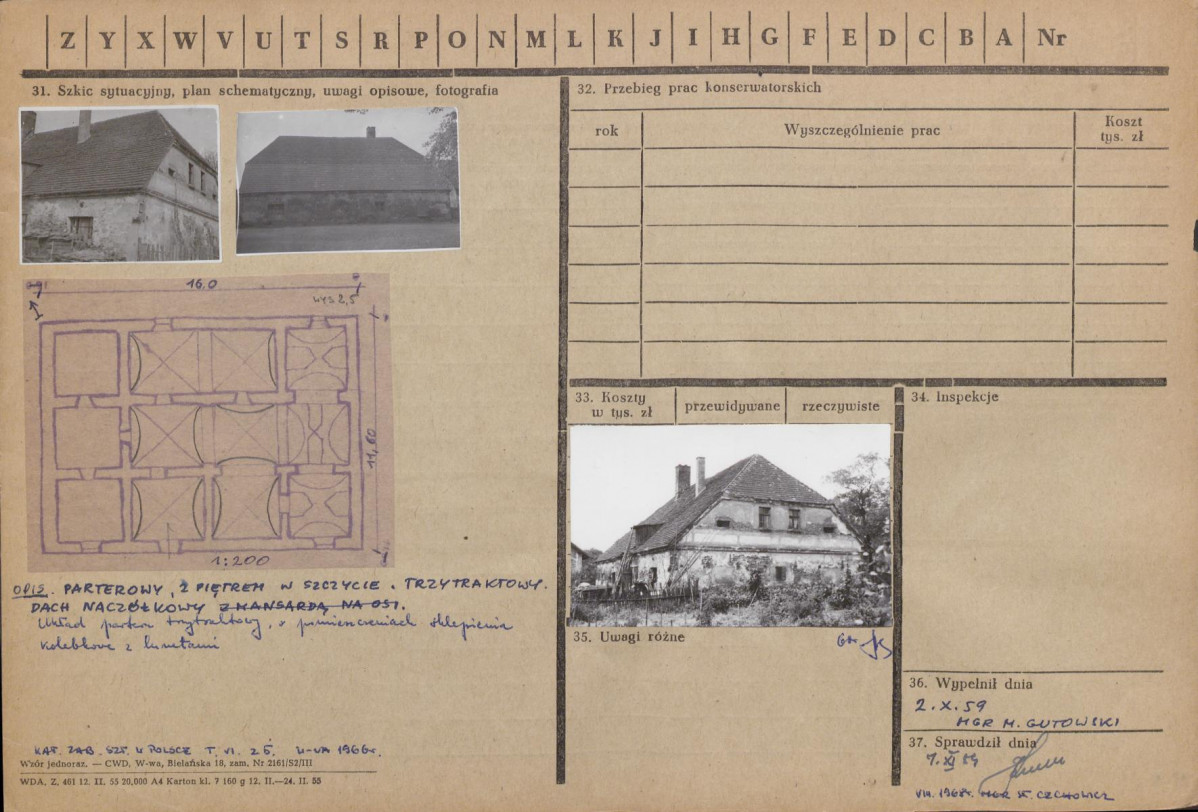 Z Y X W V U T S R P O N M L K J I H G F E D C B A Nr
31. Szkic sytuacyjny, plan schematyczny, uwagi opisowe, fotografia
16,0
wys 2,5
11,60
1:200
OPIS. PARTEROWY, Z PIĘTREM W SZCZYCIE. TRZYTRAKTOWY.
DACH NACZÓŁKOWY Z MANSARDĄ NA OSI.
Układ parteru trzytraktowy, w pomieszczeniach sklepienia
kolebkowe z lunetami
KAT. ZAB. SZT. W POLSCE T. VI. Z 5. W-WA 1966r.
Wzór jednoraz. — CWD, W-wa, Bielańska 18, zam. Nr 2161/S2/III
WDA. Z. 461 12. II. 55 20,000 A4 Karton kl. 7 160 g 12. II.—24. II. 55
32. Przebieg prac konserwatorskich
rok
Wyszczególnienie prac
Koszt
tys. zł
33. Koszty
w tys. zł
przewidywane
rzeczywiste
34. Inspekcje
35. Uwagi różne
36. Wypełnił dnia
2.X.59
MGR M. GUTOWSKI
37. Sprawdził dnia
7.XI 59
VIII. 1968r. MGR W. CZECHOWICZ